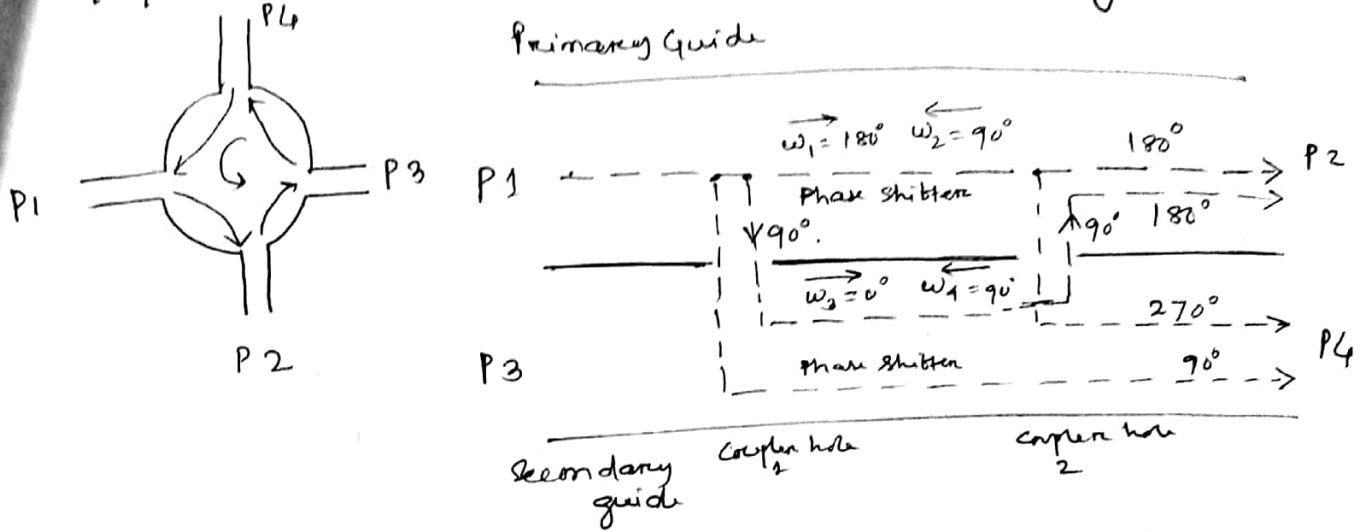 P4
Primarey Guide
ω₁ = 180° ω₂ = 90°
180°
P2
P1
P3
P1
Phase shitten
90°.
90°
180°
ω₃ = 0° ω₄ = 90°
270°
P4
P2
P3
Phase shitten
90°
Secondary
guide
Coupler hole
1
coupler hole
2